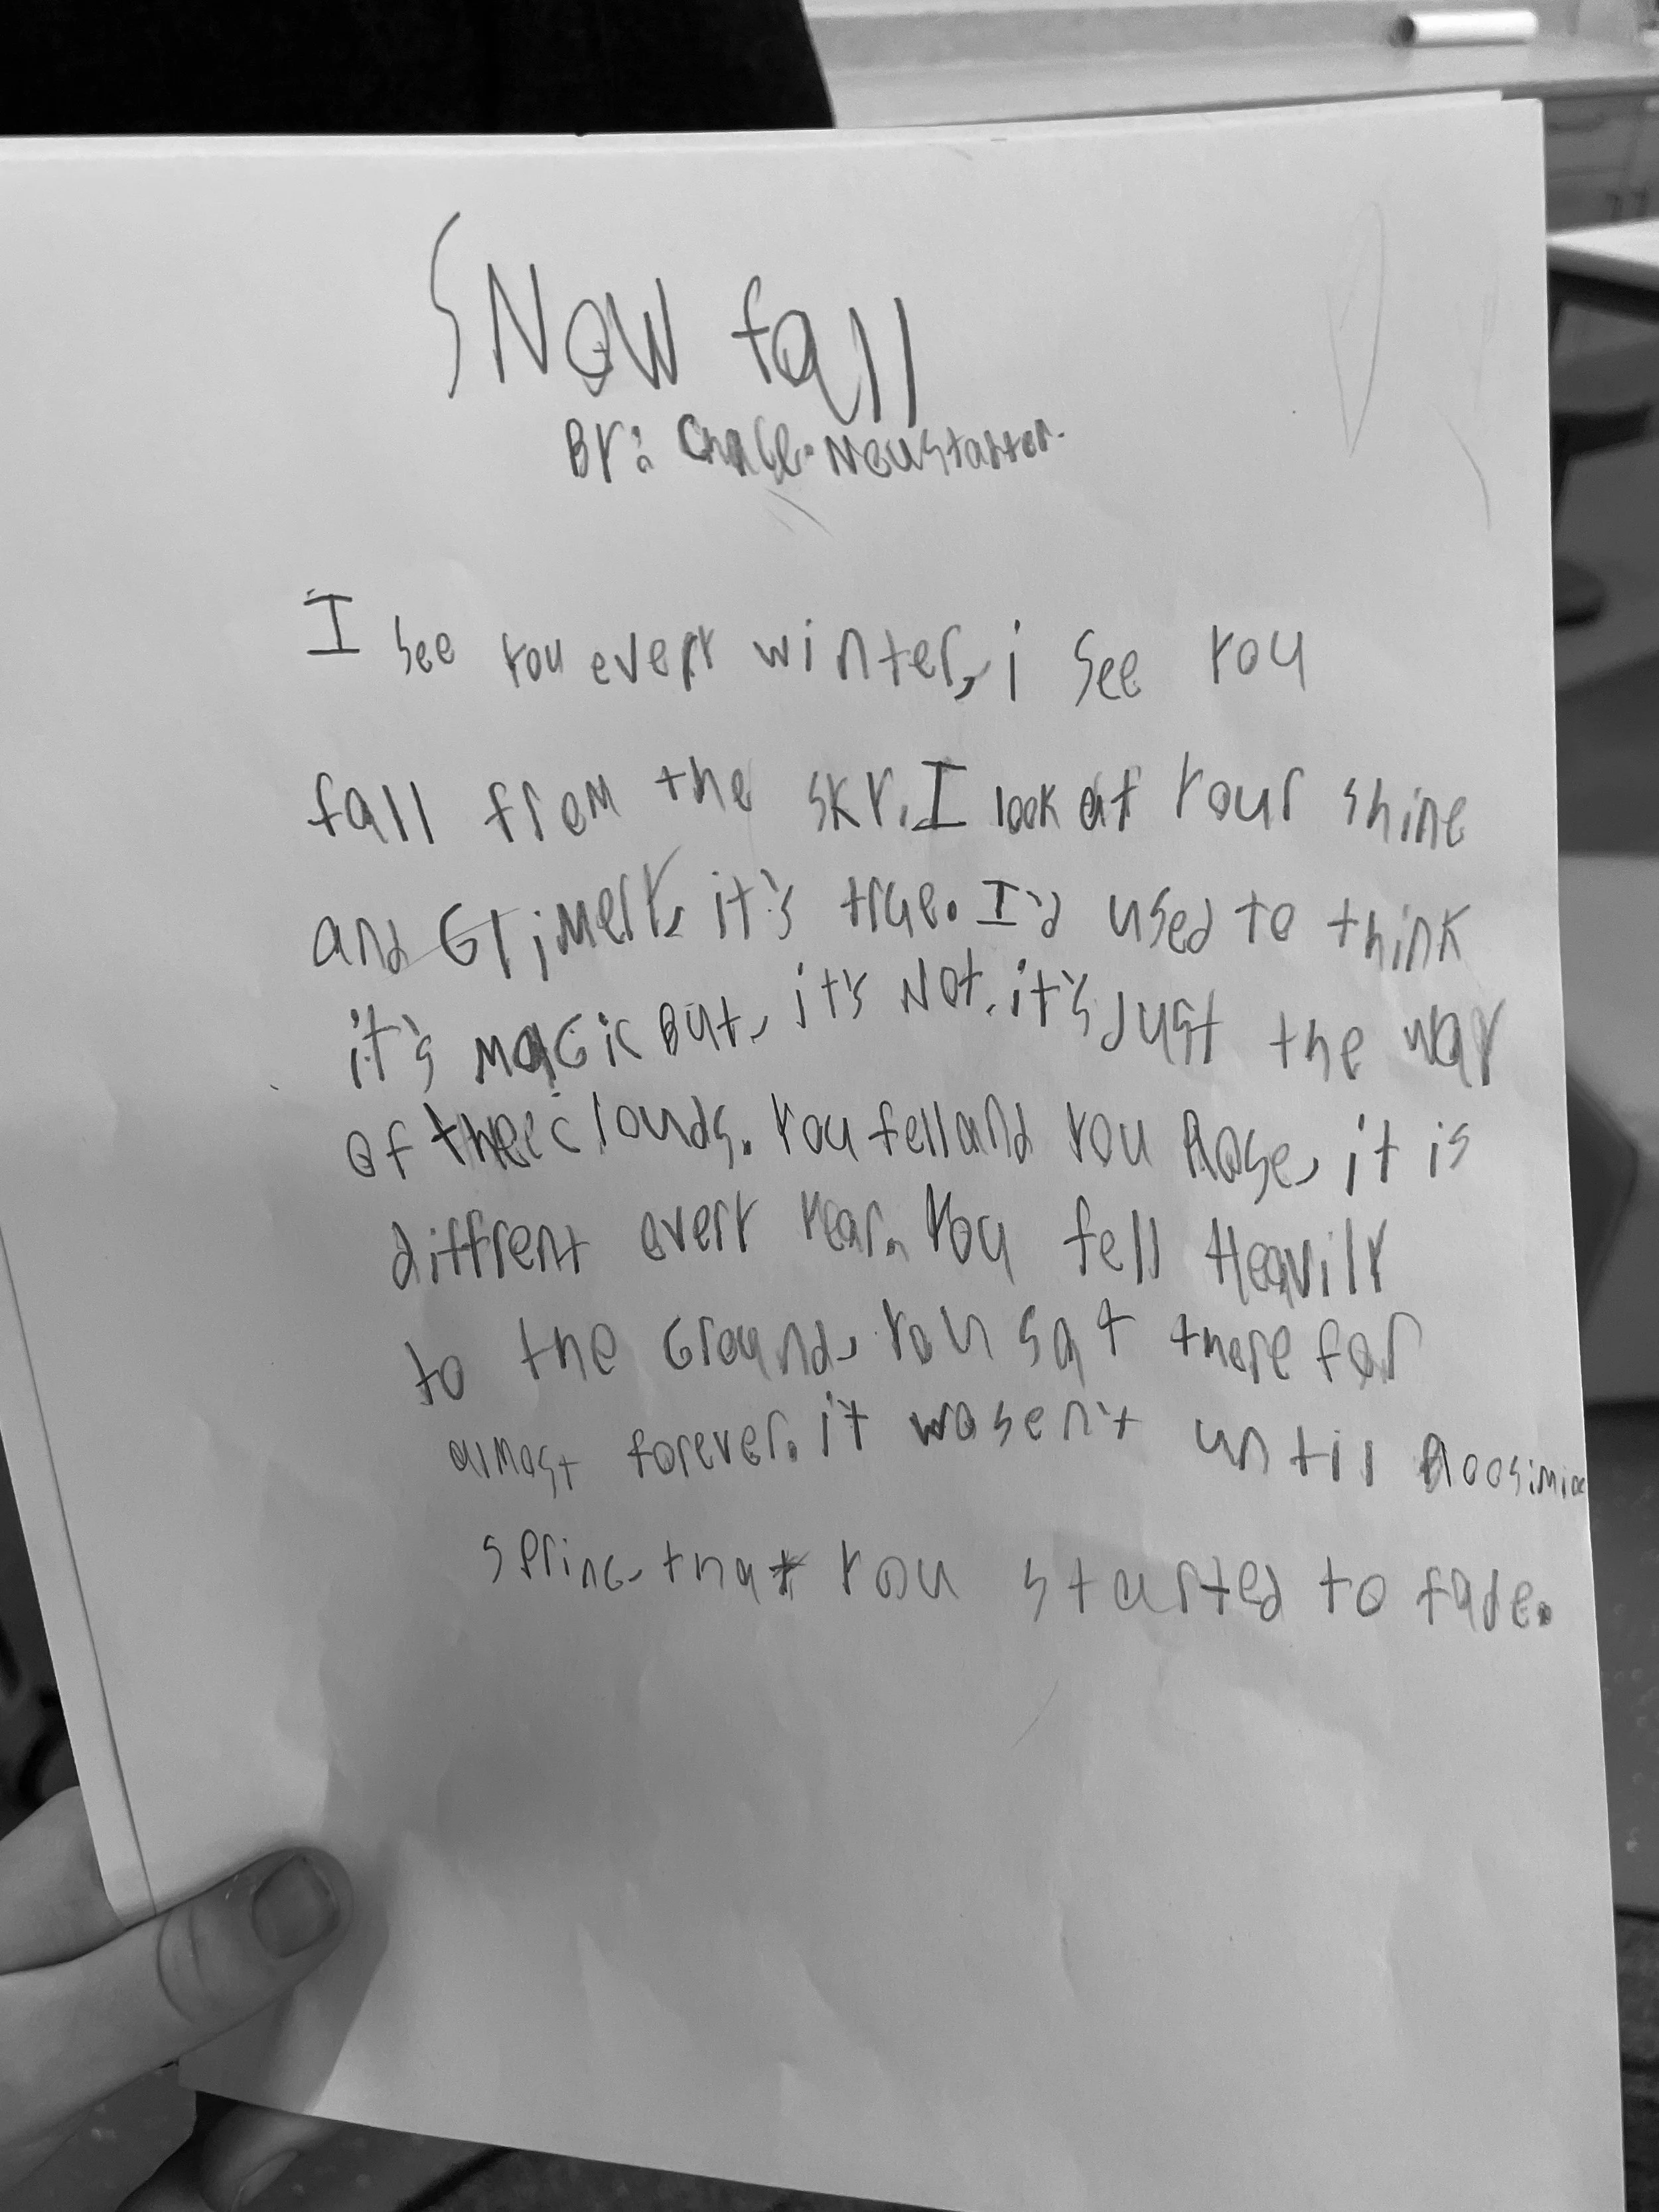 SNOW fall
BY: Chace. Neustatter.
I see you every winter, i see you
fall from the sky. I look at your shine
and Glimery, it's true. I'd used to think
it's magic But, it's Not. it's Just the way
of the clouds. You fell and you Rose, it is
diffrent every year. You fell Heavily
to the Ground, you sat there for
almost forever. it wasen't until
spring, that you started to fade.